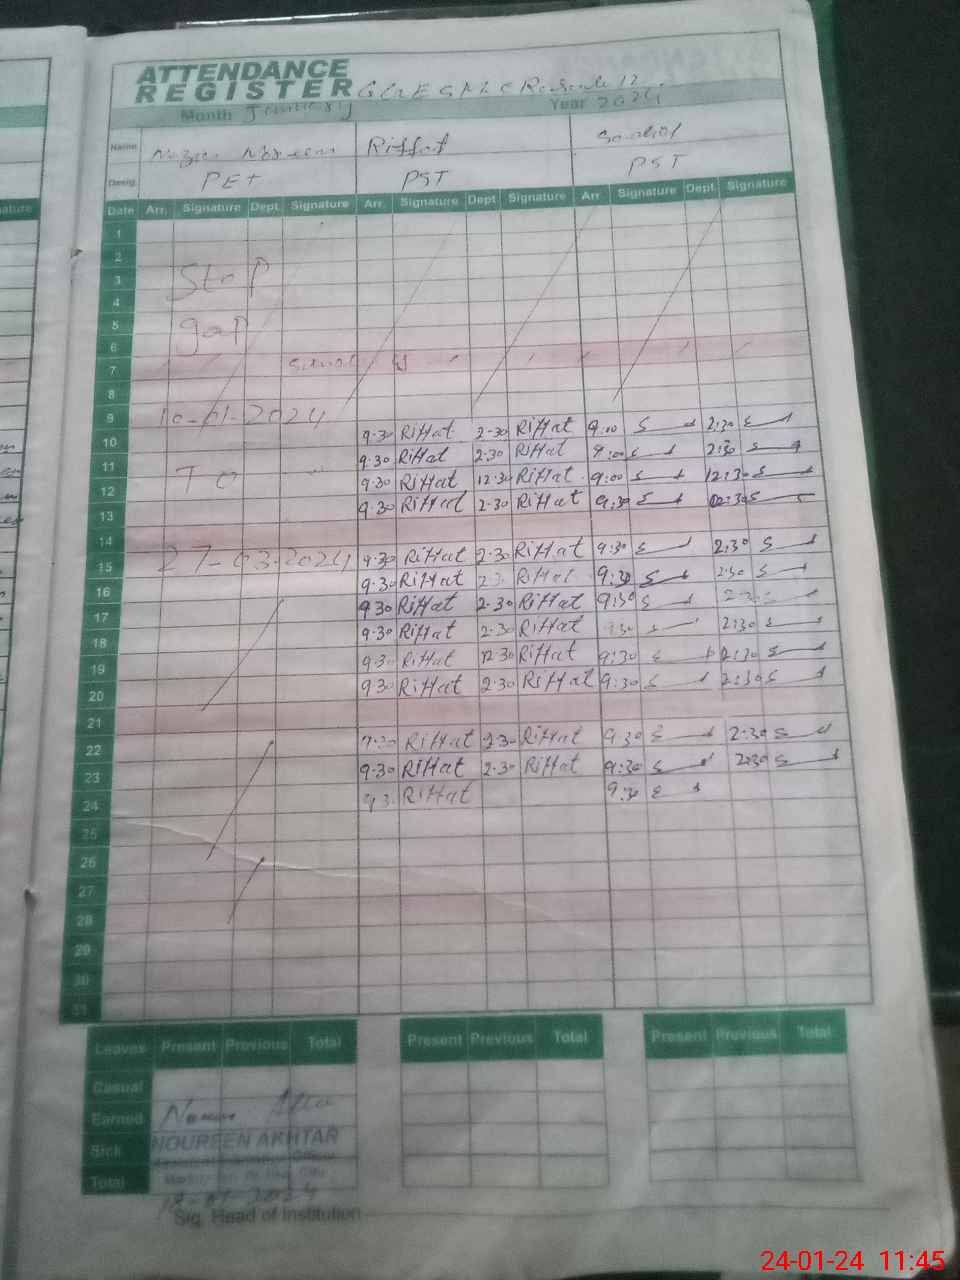 ATTENDANCE
REGISTER
Month January Year 2024
Name Riffat
Desig. PET PST PST
ature Date Arr. Signature Dept. Signature Arr. Signature Dept. Signature Arr. Signature Dept. Signature
1
2
Stop
3
4
5
gap
6
7
8
9 10-01-2024
10 9.30 Riffat 2-30 Riffat 9:00 S 2:30 S
11 9.30 Riffat 2.30 Riffat 9:00 S 2:30 S
To
12 9.30 Riffat 12.30 Riffat 9:00 S 12:30 S
13 9.30 Riffat 2.30 Riffat 9:30 S 2:30 S
14
15 27-03-2024 9.30 Riffat 2.30 Riffat 9:30 S 2:30 S
16 9.30 Riffat 2.3 Riffat 9:30 S 2:30 S
17 9.30 Riffat 2.30 Riffat 9:30 S 2:30 S
18 9.30 Riffat 2.30 Riffat 9:30 S 2:30 S
19 9.30 Riffat 12.30 Riffat 9:30 S 12:30 S
20 9.30 Riffat 2.30 Riffat 9:30 S 2:30 S
21
22 9.30 Riffat 2.30 Riffat 9:30 S 2:30 S
23 9.30 Riffat 2.30 Riffat 9:30 S 2:30 S
24 9.3 Riffat 9:30 S
25
26
27
28
29
30
31
Leaves Present Previous Total Present Previous Total Present Previous Total
Casual
Earned
Sick NOUREEN AKHTAR
Total
Sig. Head of Institution
24-01-24 11:45